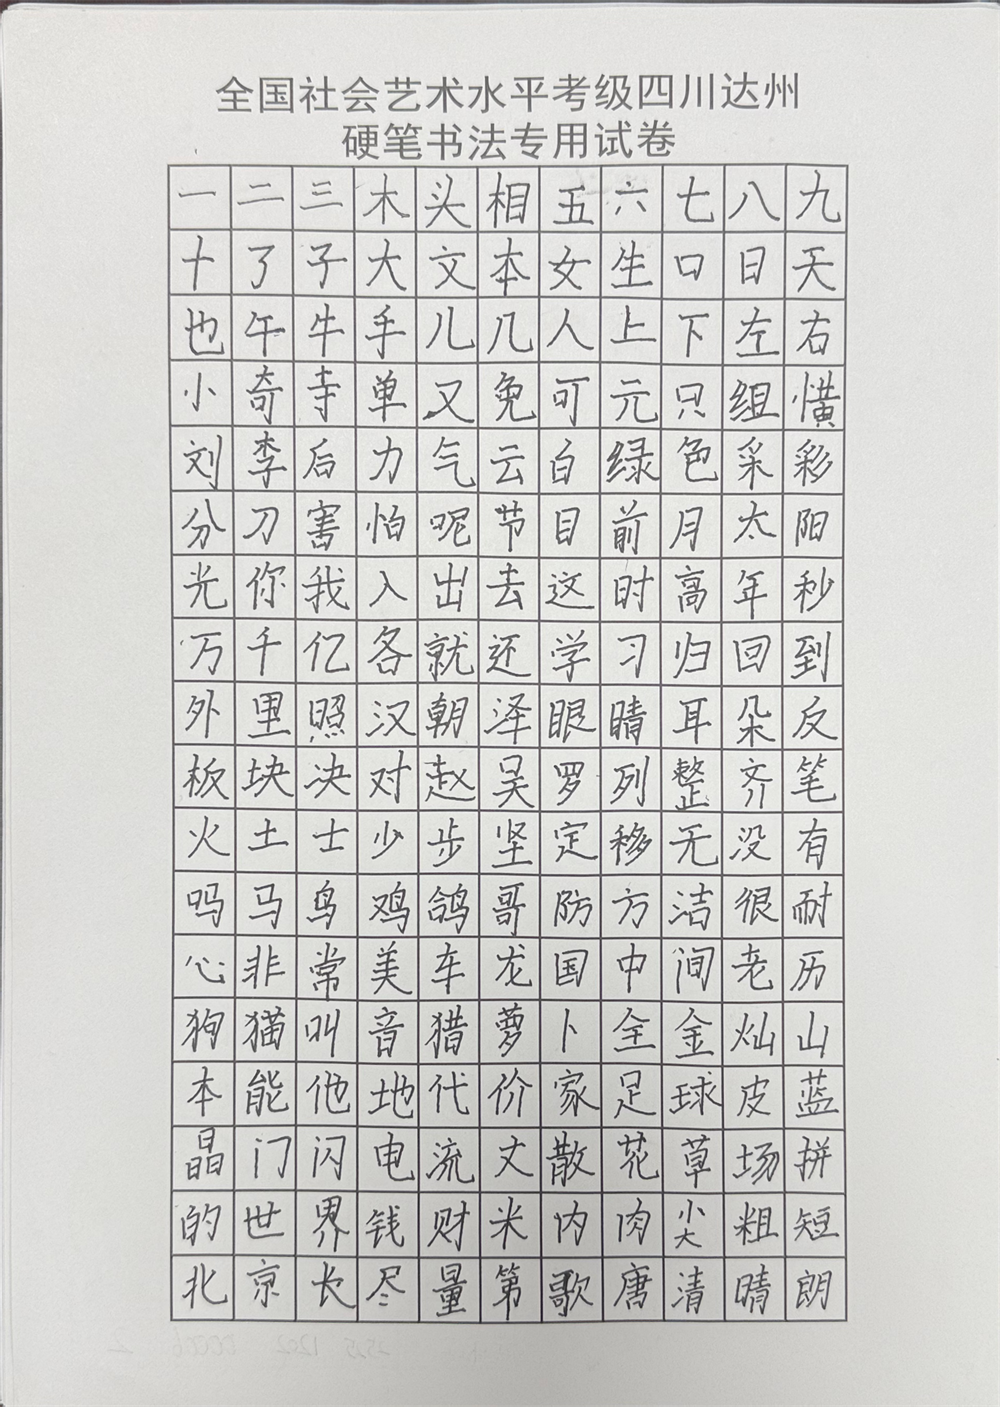 全国社会艺术水平考级四川达州
硬笔书法专用试卷
一二三木头相五六七八九
十了子大文本女生口日天
也午牛手儿几人上下左右
小奇寺单又免可元只组横
刘李后力气云白绿色采彩
分刀害怕呢节目前月太阳
光你我入出去这时高年秒
万千亿各就还学习归回到
外里照汉朝泽眼睛耳朵反
板块决对赵吴罗列整齐笔
火土士少步坚定移无没有
吗马鸟鸡鸽哥防方洁很耐
心非常美车龙国中间老历
狗猫叫音猎萝卜全金灿山
本能他地代价家足球皮蓝
晶门闪电流丈散花草场拼
的世界钱财米内肉尖粗短
北京长尽量第歌唐清晴朗